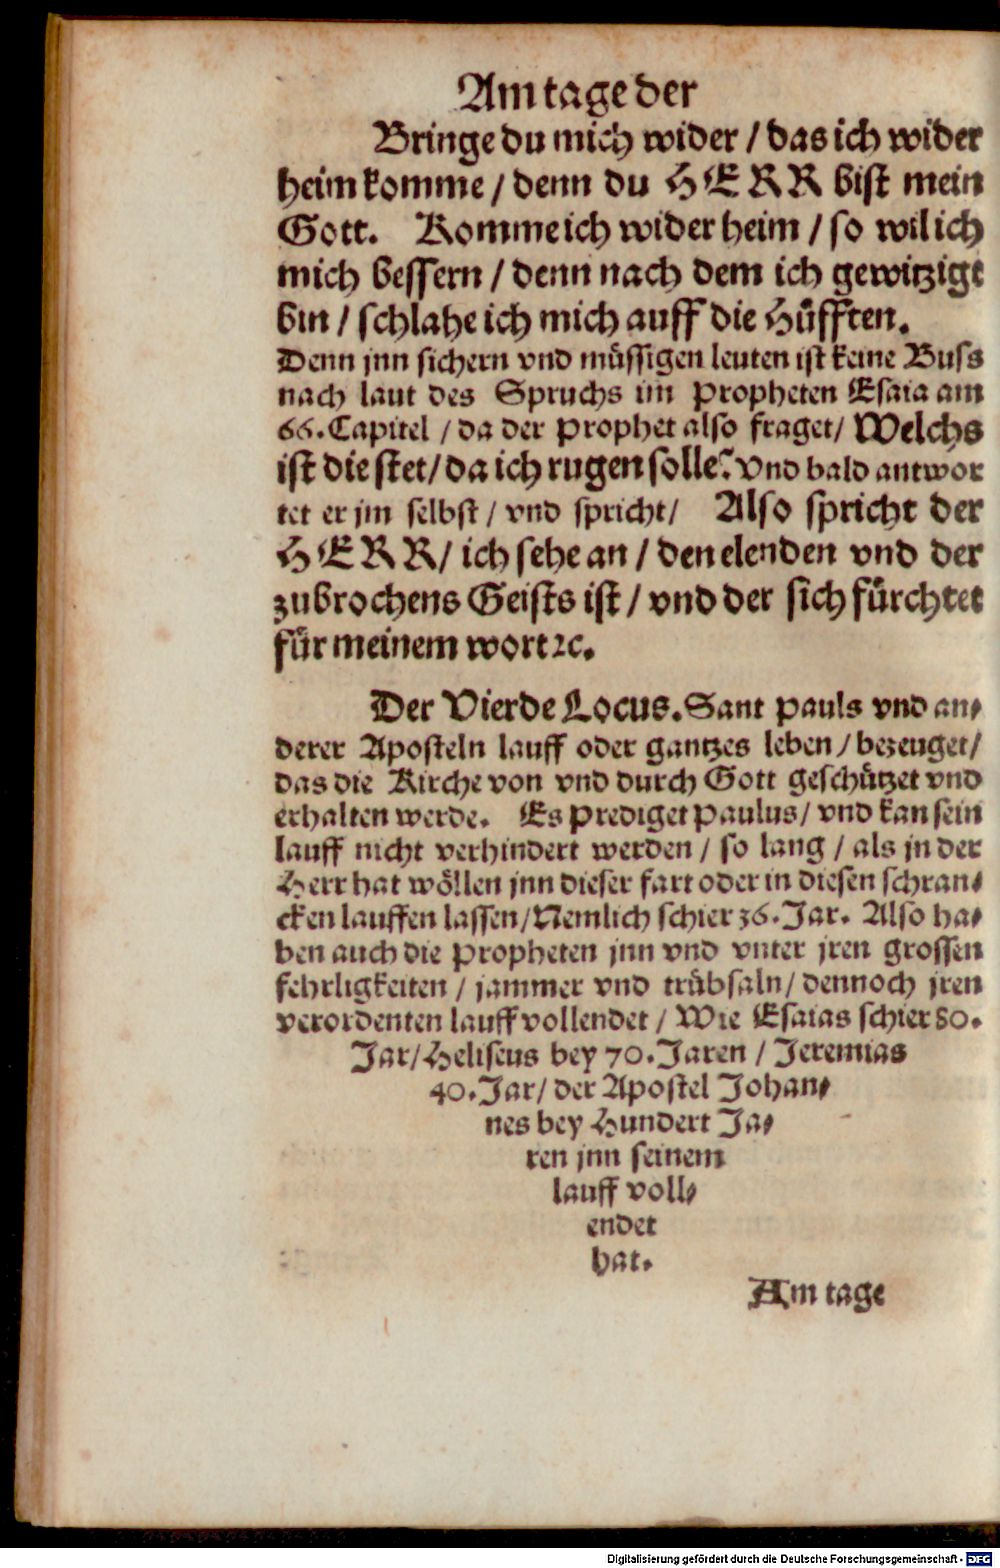 Am tage der
Bringe du mich wider / das ich wider
heim komme / denn du HERR bist mein
Gott. Komme ich wider heim / so wil ich
mich bessern / denn nach dem ich gewitzigt
bin / schlahe ich mich auff die Hüfften.
Denn jnn sichern vnd müssigen leuten ist keine Buss
nach laut des Spruchs im Propheten Esaia am
66. Capitel / da der Prophet also fraget / Welchs
ist die stet / da ich rugen solle? Vnd bald antwor
tet er jm selbst / vnd spricht / Also spricht der
HERR / ich sehe an / den elenden vnd der
zubrochens Geists ist / vnd der sich fürchtet
für meinem wort ꝛc.
Der Vierde Locus. Sant Pauls vnd an⸗
derer Aposteln lauff oder gantzes leben / bezeuget /
das die Kirche von vnd durch Gott geschützet vnd
erhalten werde. Es prediget Paulus / vnd kan sein
lauff nicht verhindert werden / so lang / als jn der
Herr hat wöllen jnn dieser fart oder in diesen schran⸗
cken lauffen lassen / Nemlich schier 36. Jar. Also ha⸗
ben auch die Propheten jnn vnd vnter jren grossen
fehrligkeiten / jammer vnd trübsaln / dennoch jren
verordenten lauff vollendet / Wie Esaias schier 80.
Jar / Heliseus bey 70. Jaren / Jeremias
40. Jar / der Apostel Johan⸗
nes bey Hundert Ja⸗
ren jnn seinem
lauff voll⸗
endet
hat.
Am tage
Digitalisierung gefördert durch die Deutsche Forschungsgemeinschaft - DFG